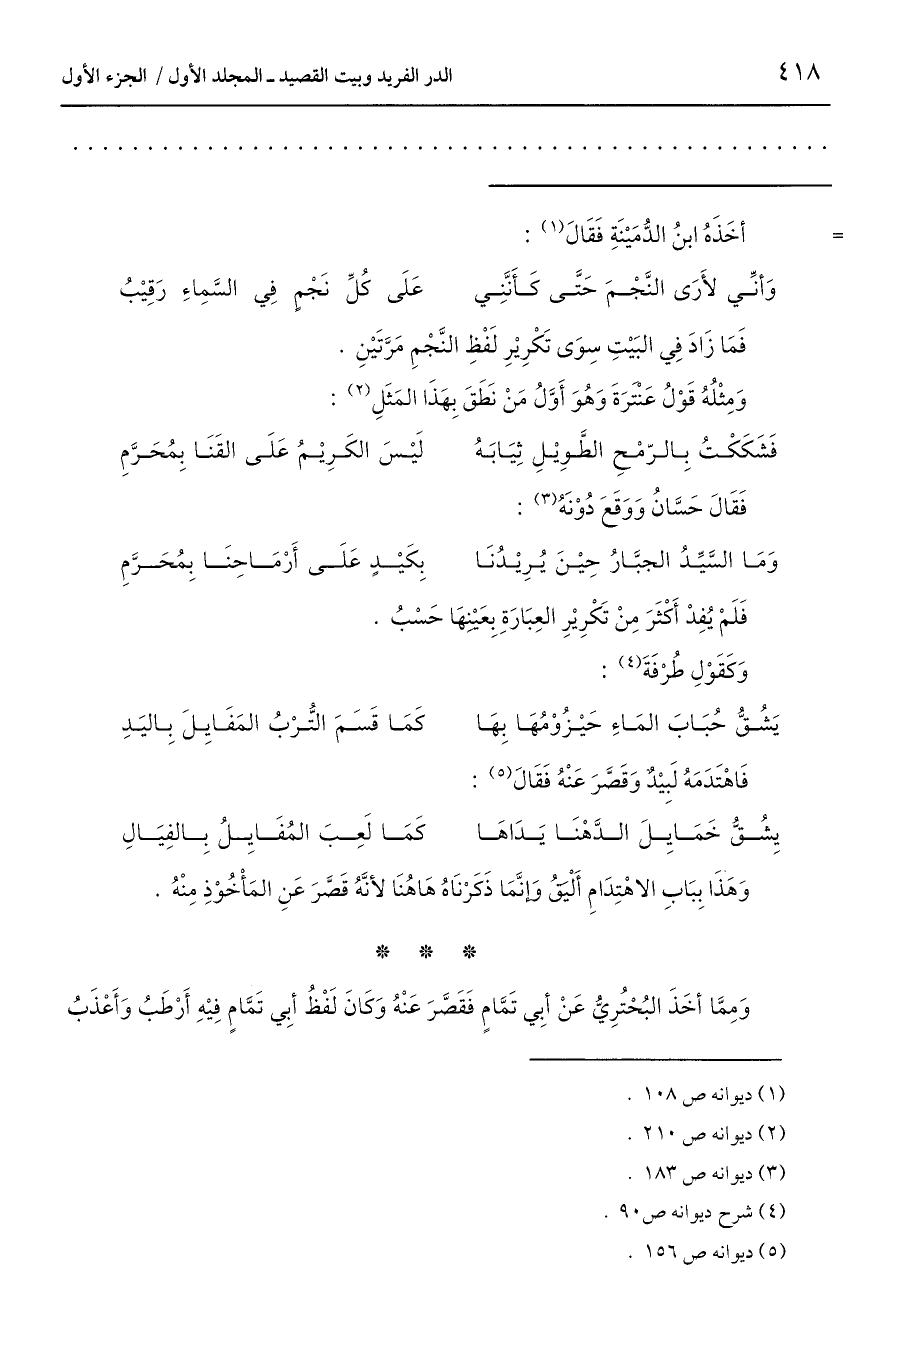 ٤١٨ الدر الفريد وبيت القصيد ـ المجلد الأول / الجزء الأول
. . . . . . . . . . . . . . . . . . . . . . . . . . . . . . . . . . . . . . . . . . . . . . . . . . .
= أخَذَهُ ابنُ الدُّمَيْنَةِ فَقَالَ(١) :
وَأنِّـي لأَرَى النَّجْـمَ حَتَّـى كَـأَنَّنِـي عَلَى كُلِّ نَجْمٍ فِي السَّمَاءِ رَقِيْبُ
فَمَا زَادَ فِي البَيْتِ سِوَى تَكْرِيْرِ لَفْظِ النَّجْمِ مَرَّتَيْنِ .
وَمِثْلُهُ قَوْلُ عَنْتَرَةَ وَهُوَ أَوَّلُ مَنْ نَطَقَ بِهَذَا المَثَلِ(٢) :
فَشَكَكْـتُ بِـالـرّمْـحِ الطَّـوِيْـلِ ثِيَـابَـهُ لَيْـسَ الكَـرِيْـمُ عَلَـى القَنَـا بِمُحَـرَّمِ
فَقَالَ حَسَّانُ وَوَقَعَ دُوْنَهُ(٣) :
وَمَـا السَّيِّـدُ الجبَّـارُ حِيْـنَ يُـرِيْـدُنَـا بِكَيْــدٍ عَلَــى أَرْمَــاحِنَــا بِمُحَــرَّمِ
فَلَمْ يُفِدْ أَكْثَرَ مِنْ تَكْرِيْرِ العِبَارَةِ بِعَيْنِهَا حَسْبُ .
وَكَقَوْلِ طُرْفَةَ(٤) :
يَشُـقُّ حُبَـابَ المَـاءِ حَيْـزُوْمُهَـا بِهَـا كَمَـا قَسَـمَ التُّـرْبُ المَفَـايِـلَ بِـاليَـدِ
فَاهْتَدَمَهُ لَبِيْدٌ وَقَصَّرَ عَنْهُ فَقَالَ(٥) :
يِشُــقُّ خَمَــايِــلَ الــدَّهْنَــا يَــدَاهَــا كَمَــا لَعِــبَ المُفَــايِــلُ بِــالفِيَــالِ
وَهَذَا بِبَابِ الاهْتِدَامِ أَلْيَقُ وَإنَّمَا ذَكَرْنَاهُ هَاهُنَا لأنَّهُ قَصَّرَ عَنِ المَأْخُوْذِ مِنْهُ .
* * *
وَمِمَّا أخَذَ البُحْتُرِيُّ عَنْ أبِي تَمَّامٍ فَقَصَّرَ عَنْهُ وَكَانَ لَفْظُ أبِي تَمَّامٍ فِيْهِ أَرْطَبُ وَأَعْذَبُ
(١) ديوانه ص ١٠٨ .
(٢) ديوانه ص ٢١٠ .
(٣) ديوانه ص ١٨٣ .
(٤) شرح ديوانه ص٩٠ .
(٥) ديوانه ص ١٥٦ .